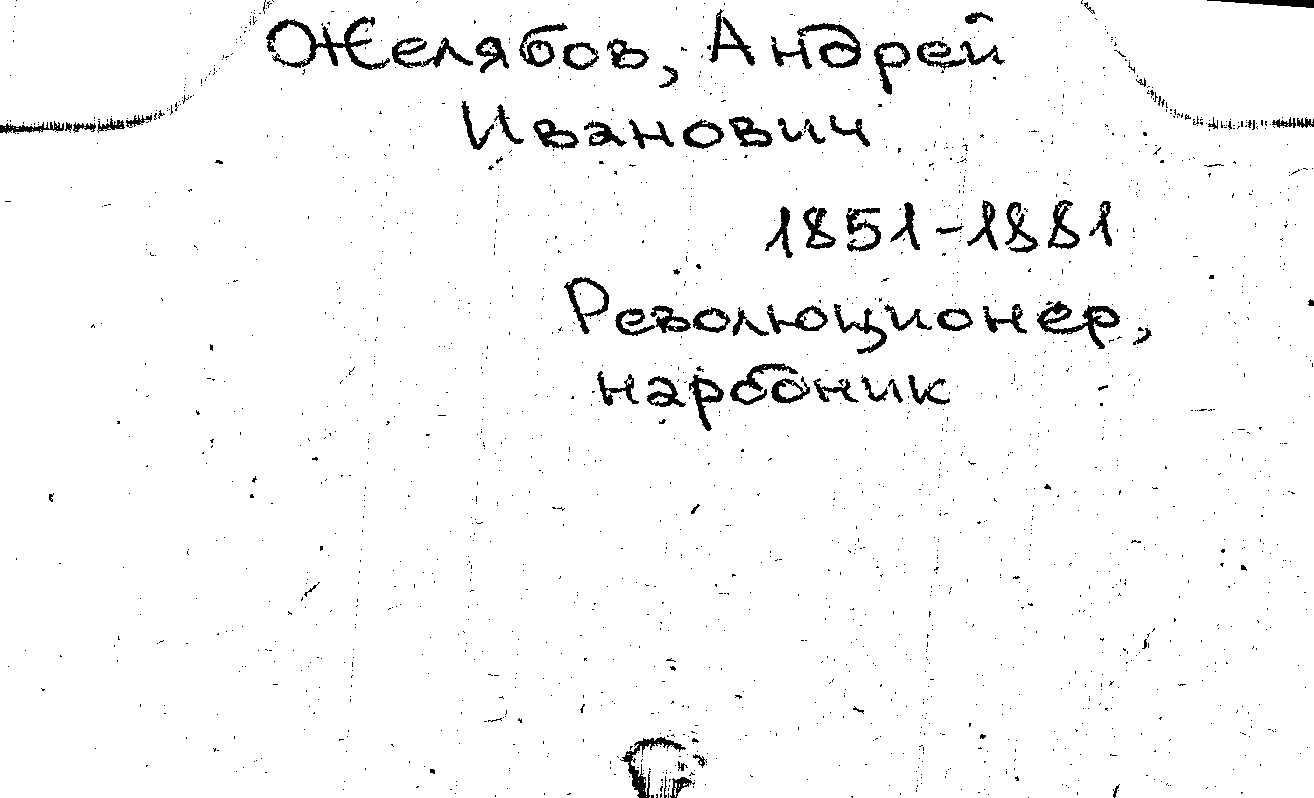 Желябов, Андрей
Иванович
1851-1881
Революционер,
народник